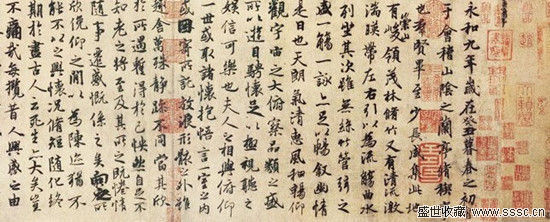 永和九年歲在癸丑暮春之初
于會稽山陰之蘭亭脩稧
也羣賢畢至少長咸集此地
有崇山峻領茂林脩竹又有清流激
湍暎帶左右引以為流觴曲水
列坐其次雖無絲竹管弦之
盛一觴一詠亦足以暢敘幽情
是日也天朗氣清惠風和暢仰
觀宇宙之大俯察品類之盛
所以遊目騁懷足以極視聽之
娛信可樂也夫人之相與俯仰
一世或取諸懷抱悟言一室之內
或因寄所託放浪形骸之外雖
趣舍萬殊靜躁不同當其欣
於所遇蹔得於己怏然自足不
知老之將至及其所之既惓情
隨事遷感慨係之矣向之所
欣俛仰之間以為陳迹猶不
能不以之興懷況脩短隨化終
期於盡古人云死生亦大矣豈
不痛哉每攬昔人興感之由
盛世收藏www.sssc.cn